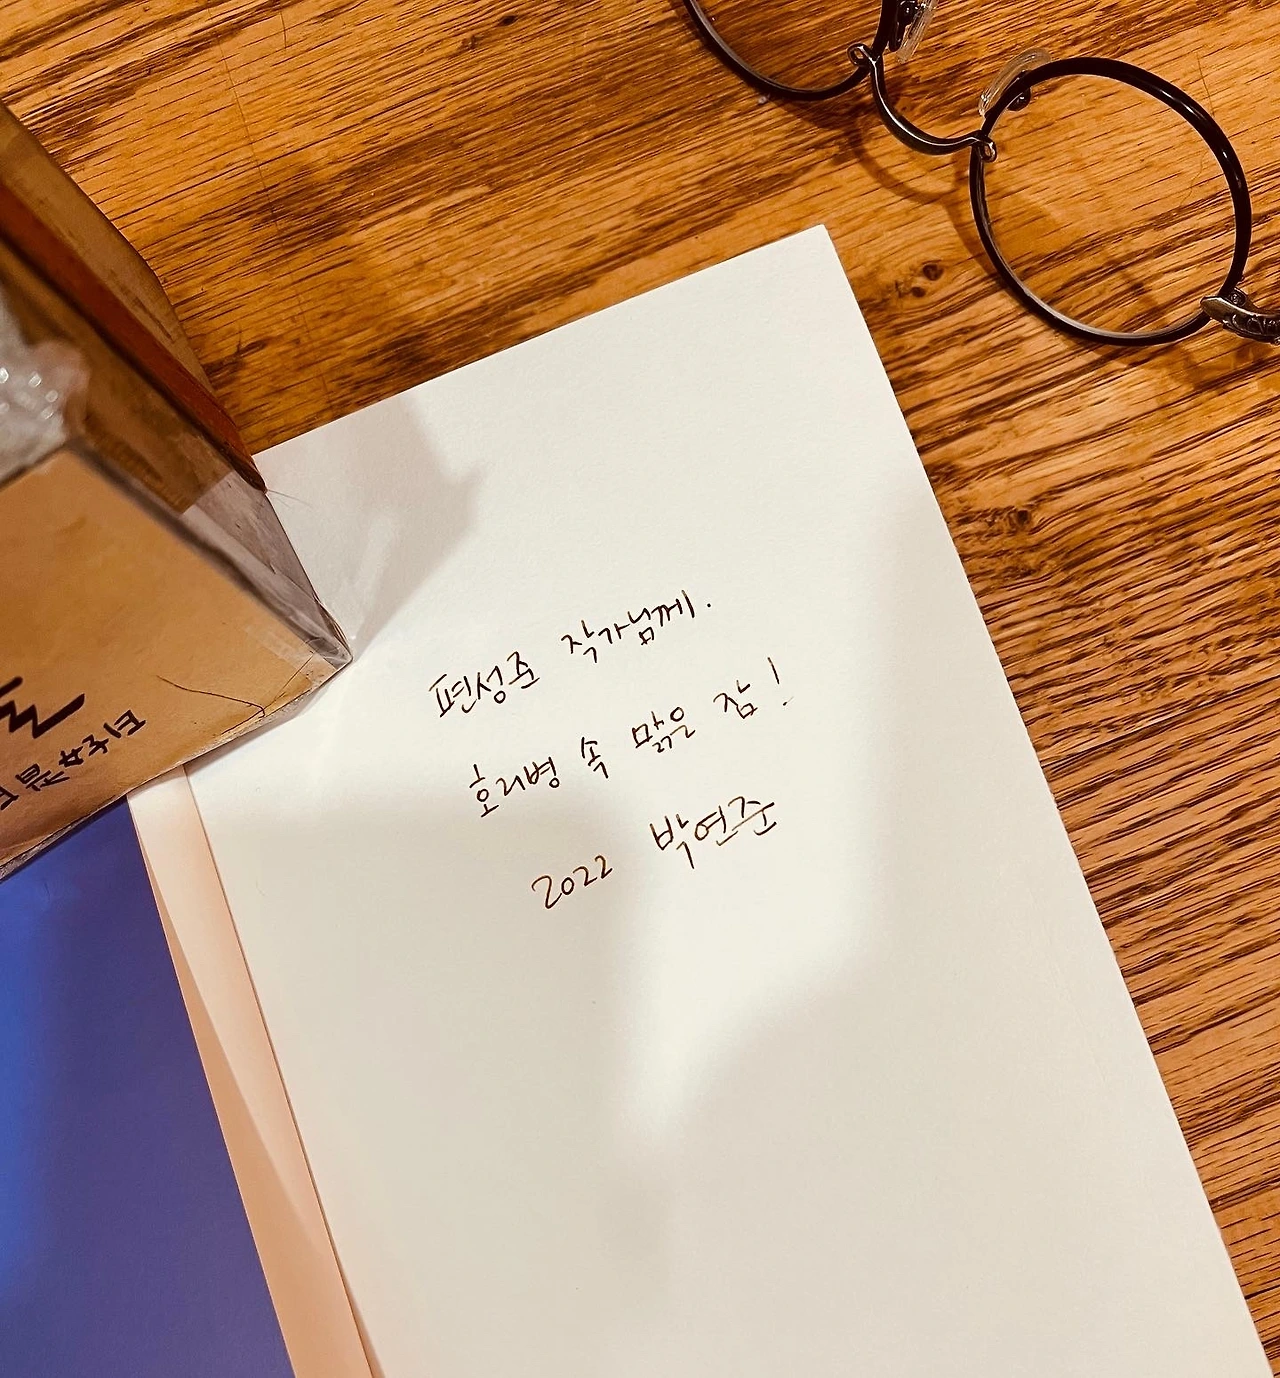 편성준 작가님께.
호리병 속 맑은 잠!
2022 박연준